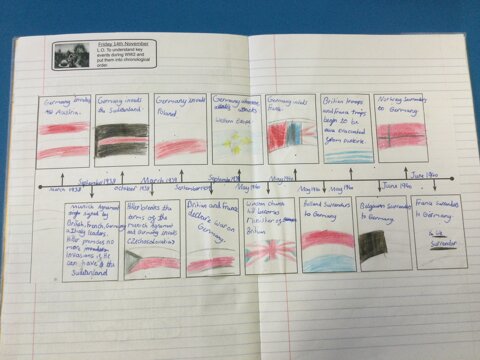 Friday 14th November
L.O. To understand key
events during WW2 and
put them into chronological
order
Germany invades
Austria.
Germany invades
the Sudetenland
Germany invades
Poland
Germany
attacks
Western Europe
Germany invades
France
British troops
and french troops
begin to be
evacuated
from Dunkirk.
Norway surrenders
to Germany
March 1938
September 1938
October 1938
March 1939
September
September 1939
May 1940
May 1940
May 1940
May 1940
June 1940
June 1940
Munich Agreement
signed by
British, French, Germany
& Italy leaders.
Hitler promises no
more
invasions if he
can have the
Sudetenland
Hitler breaks the
terms of the
Munich agreement
and Germany invades
Britain and France
declare war on
Germany
Winston Church
ill becomes
Prime Minister of
Britian
Holland Surrenders
to Germany
Belgium Surrenders
to Germany.
France Surrenders
to Germany.
Surrender